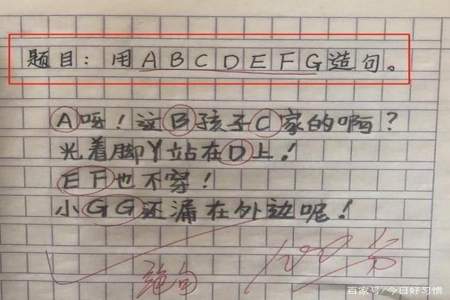 题目：用ABCDEFG造句。
A呀！这B孩子C家的啊？
光着脚丫站在D上！
EF也不穿！
小GG还漏在外边呢！
绝句
100分
百家号/今日好习惯